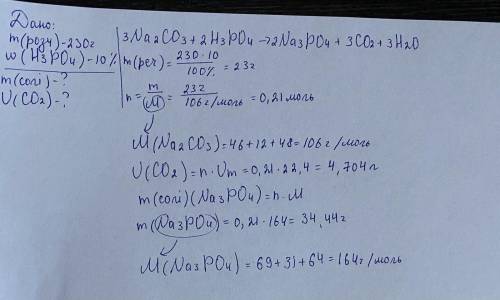 Дано:
m(розч)-230г
w(H₃PO₄)-10%
m(солі)-?
V(CO₂)-?
3Na₂CO₃+2H₃PO₄→2Na₃PO₄+3CO₂+3H₂O
m(реч)=230·10/100%=23г
n=m/M=23г/106г/моль=0,21моль
M(Na₂CO₃)=46+12+48=106г/моль
V(CO₂)=n·Vm=0,21·22,4=4,704л
m(солі)(Na₃PO₄)=n·M
m(Na₃PO₄)=0,21·164=34,44г
M(Na₃PO₄)=69+31+64=164г/моль